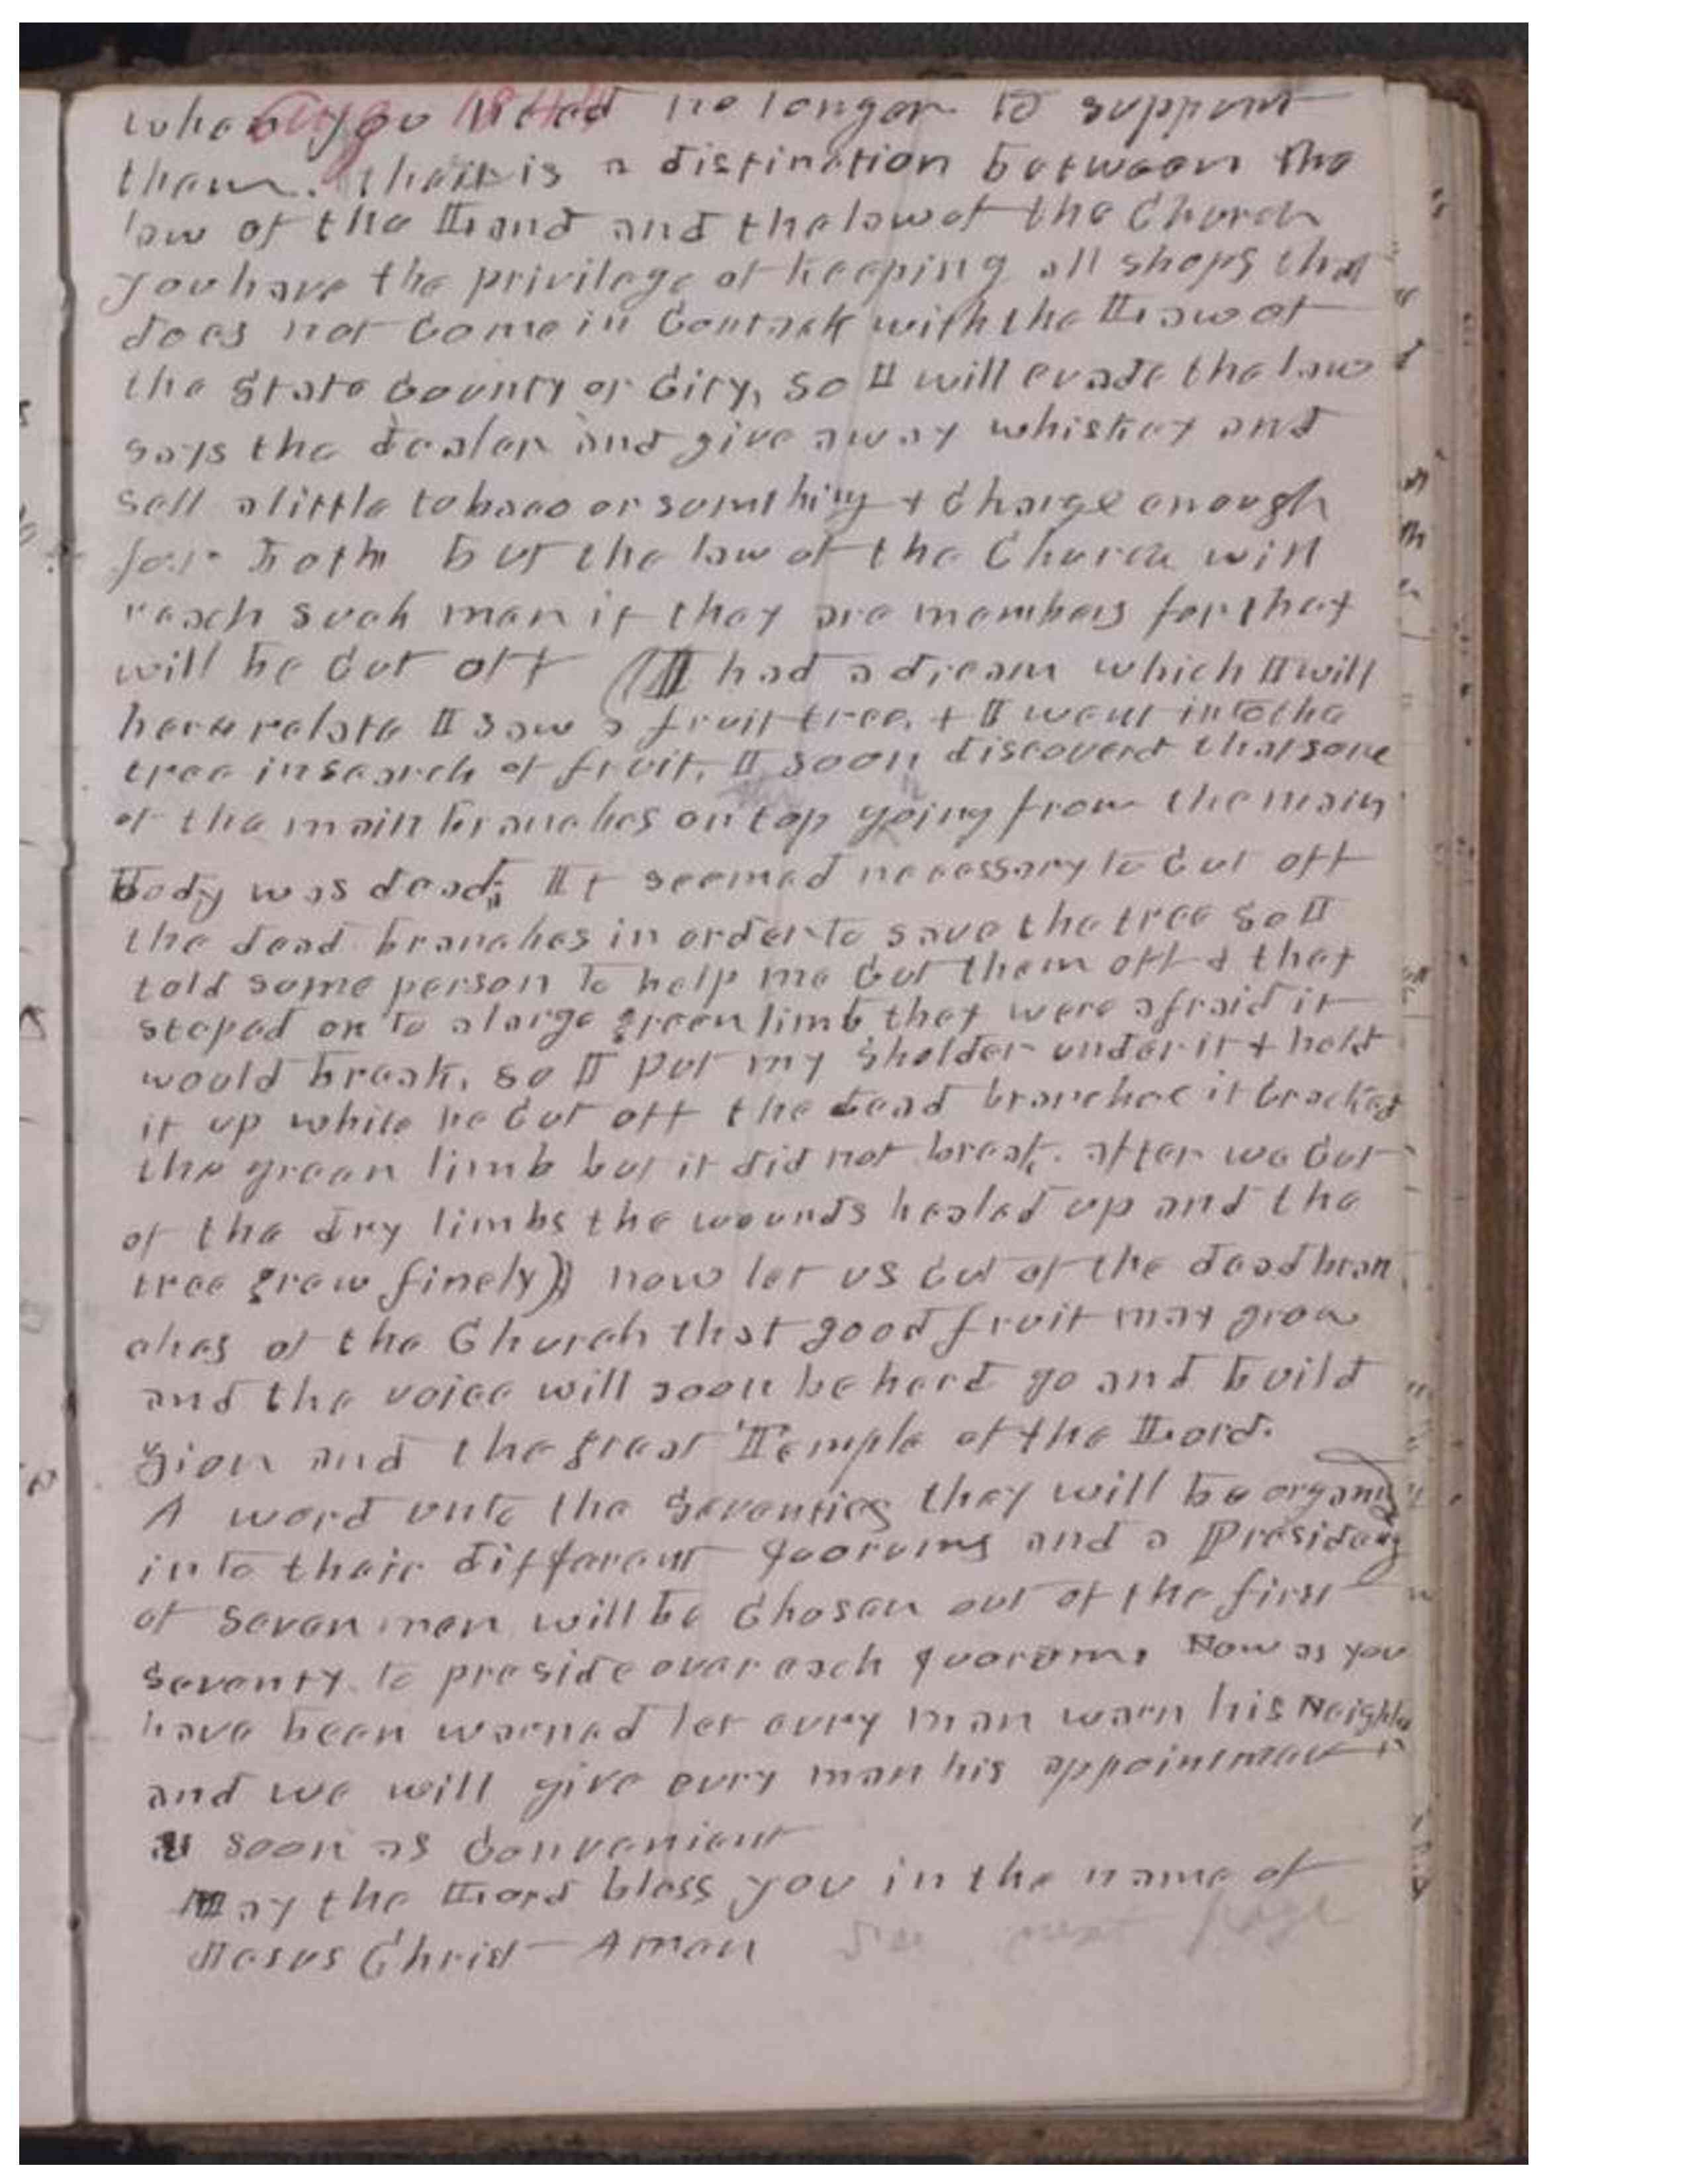 Aug 1844
when you need no longer to support
them. thair is a distination between the
law of the Land and the law of the Church
you have the privilege of keeping all shops that
does not Come in Contack with the Law of
the State County or City, so I will evade the law
says the dealer and give away whiskey and
sell a little tobaco or sumthing + Charge enough
for both but the law of the Church will
reach such men if they are members for they
will be Cut off ((I had a dream which I will
here relate I saw a fruit tree, + I went into the
tree in search of fruit, I soon discoverd that some
of the main branches on top going from the main
body was dead; It seemed necessary to Cut off
the dead branches in order to save the tree so I
told some person to help me Cut them off & they
steped on to a large green limb they were afraid it
would break, so I put my sholder under it + held
it up while he Cut off the dead branches it Cracked
the green limb but it did not break. after we Cut
of the dry limbs the wounds healed up and the
tree grew finely)) now let us Cut of the dead bran
ches of the Church that good fruit may grow
and the voice will soon be herd go and build
Zion and the great Temple of the Lord.
A word unto the Seventies they will be organiz
into their different quorums and a Presidency
of seven men will be Chosen out of the first
seventy to preside over each quorum, Now as you
have been warned let evry man warn his Neighbor
and we will give evry man his appointment
as soon as Convenient
May the Lord bless you in the name of
Jesus Christ Amen See next page